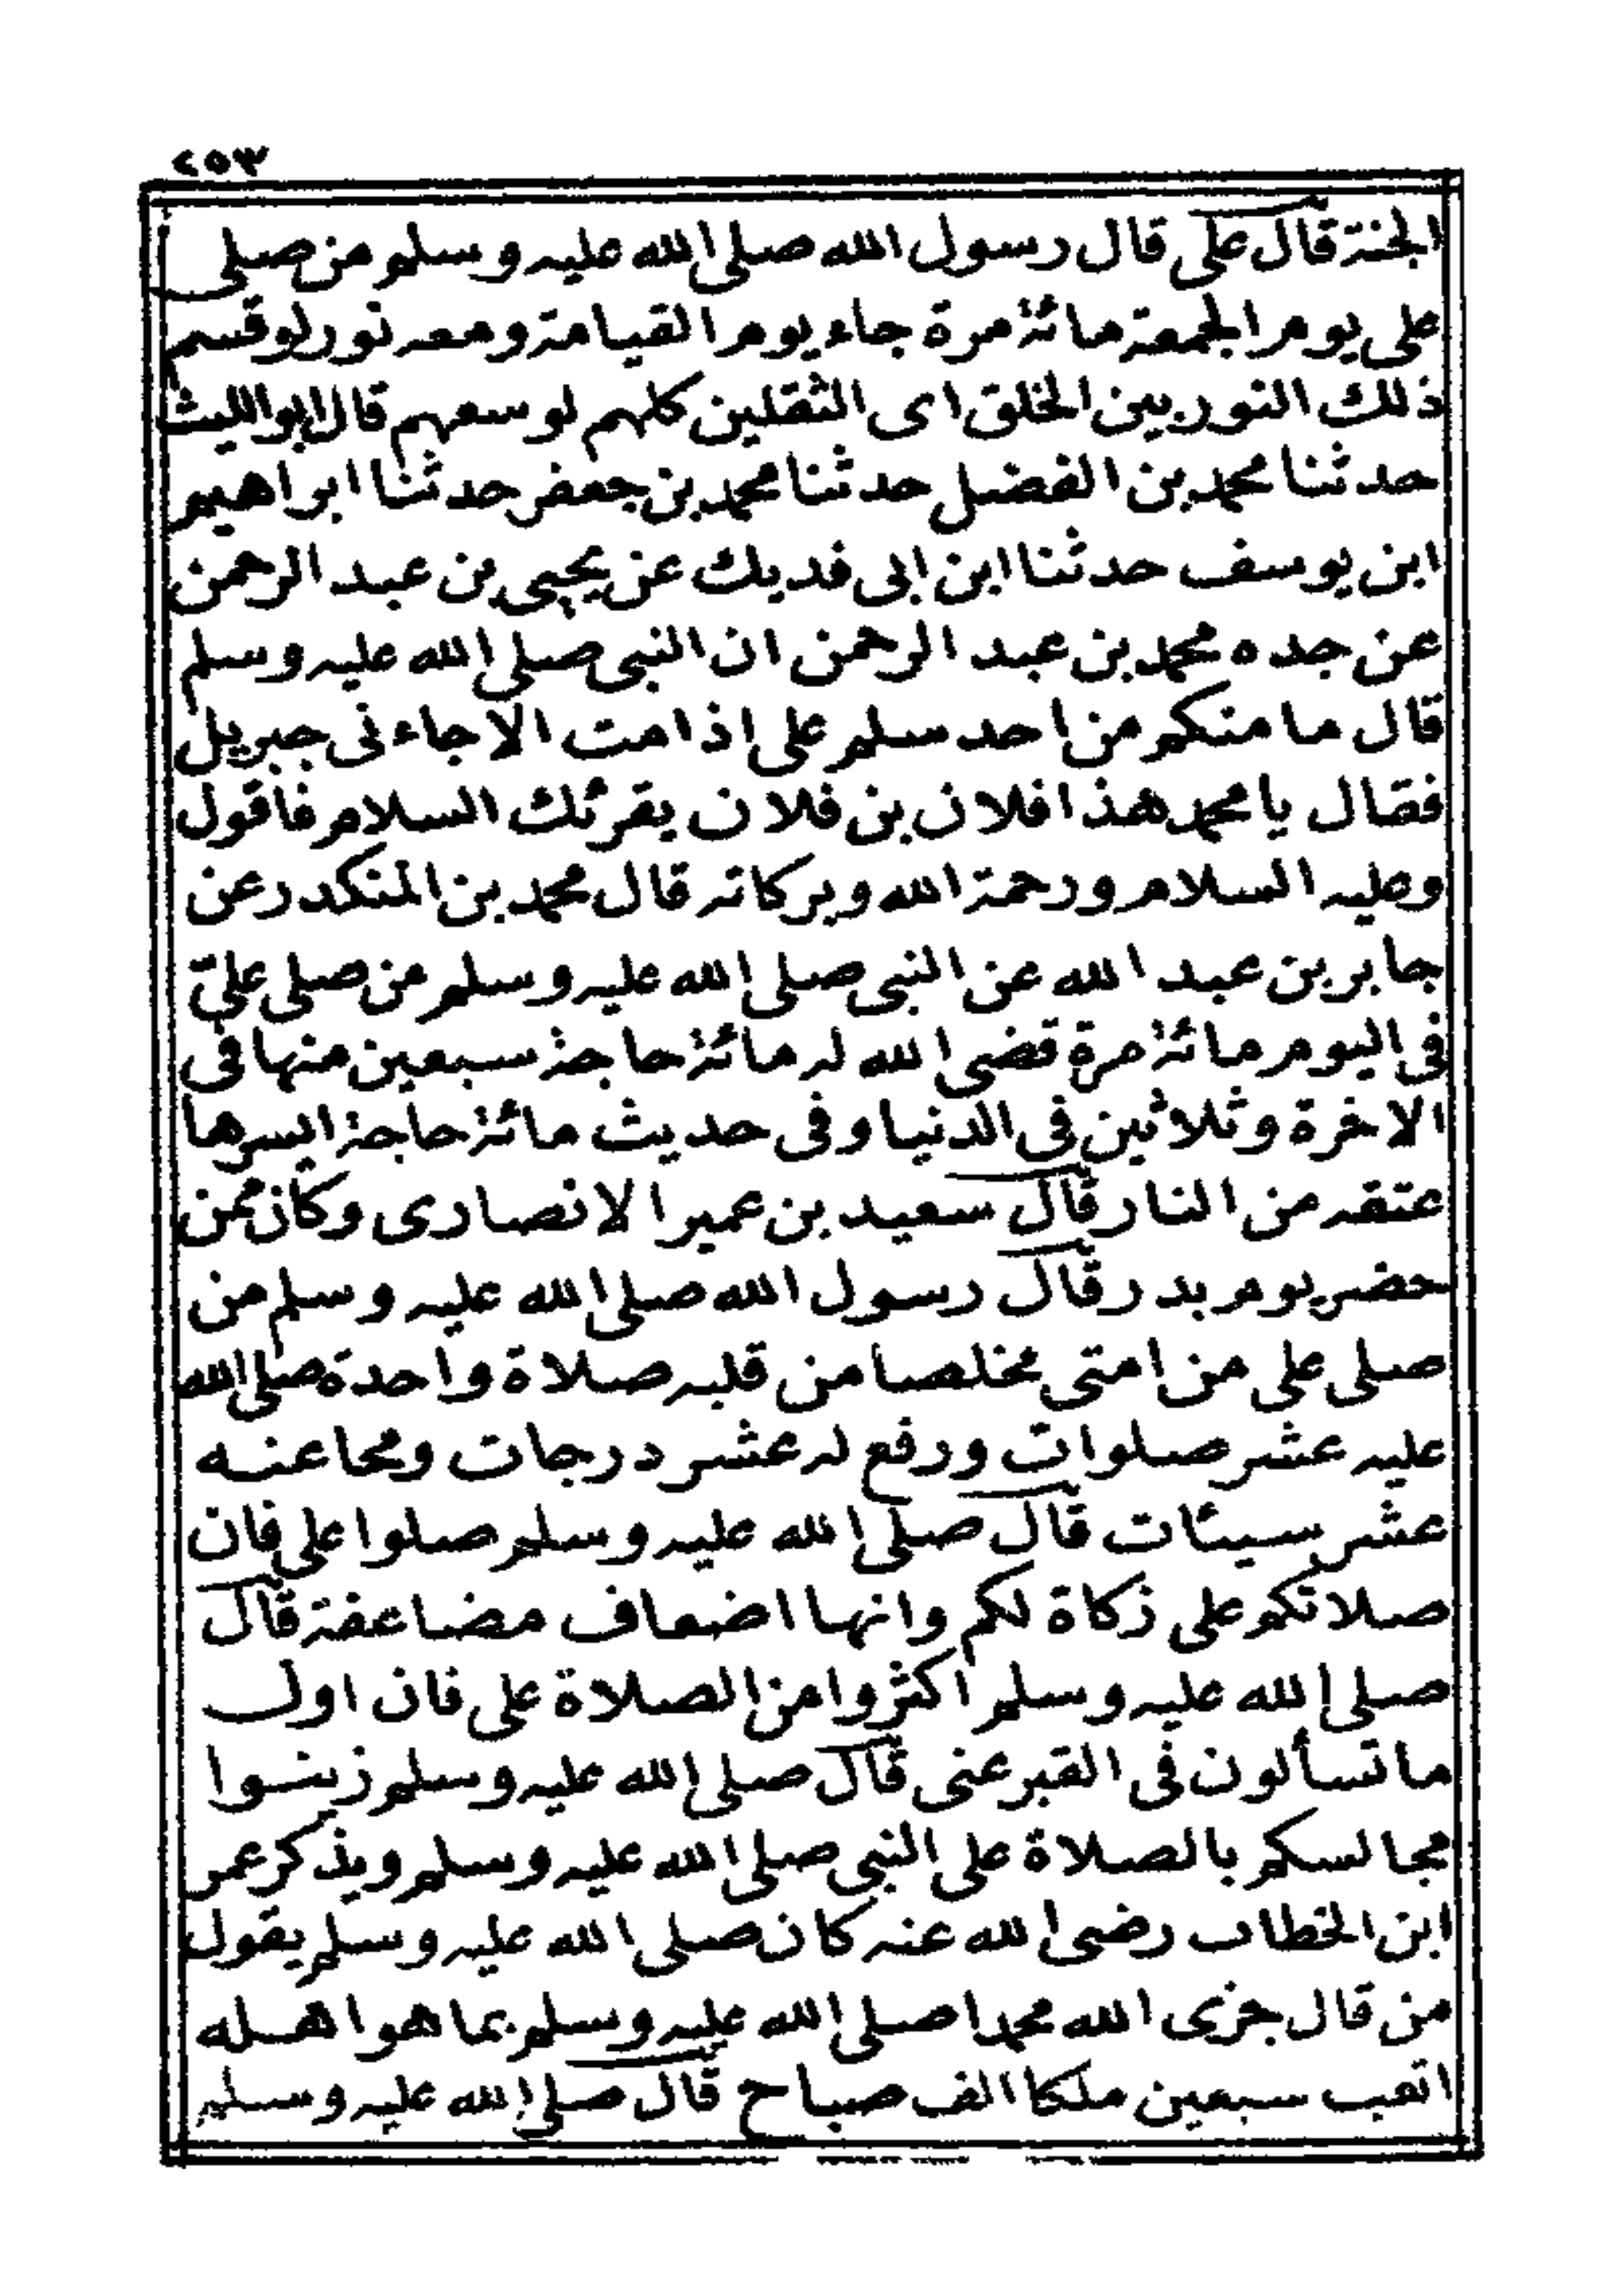 ٢٥٣
الجنة قال على قال رسول الله صلى الله عليه وسلم من صلى
على يوم الجمعة مائة مرة جاء يوم القيامة ومعه نور لو قسم
ذلك النور بين الخلق اى الثقلين كلهم لوسعهم قال ابو الليث
حدثنا محمد بن الفضل حدثنا محمد بن جعفر حدثنا ابراهيم
ابن يوسف حدثنا ابن ابى فديك عن يحيى بن عبد الرحمن
عن جده محمد بن عبد الرحمن ان النبى صلى الله عليه وسلم
قال ما منكم من احد سلم على اذا مت الا جاءنى جبريل
فقال يا محمد هذا فلان بن فلان يقرئك السلام فاقول
وعليه السلام ورحمة الله وبركاته قال محمد بن المنكدر عن
جابر بن عبد الله عن النبى صلى الله عليه وسلم من صلى علىّ
فى اليوم مائة مرة قضى الله له مائة حاجة سبعين منها فى
الاخرة وثلاثين فى الدنيا وفى حديث مائة حاجة ايسرها
عتقه من النار قال سعيد بن عمير الانصارى وكان ممن
حضر يوم بدر قال رسول الله صلى الله عليه وسلم من
صلى على من امتى مخلصا من قلبه صلاة واحدة صلى الله
عليه عشر صلوات ورفع له عشر درجات ومحا عنه
عشر سيئات قال صلى الله عليه وسلم صلوا على فان
صلاتكم على زكاة لكم وانها اضعاف مضاعفة قال
صلى الله عليه وسلم اكثروا من الصلاة على فان اول
ما تسألون فى القبر عنى قال صلى الله عليه وسلم زينوا
مجالسكم بالصلاة على النبى صلى الله عليه وسلم ويذكر عمر
ابن الخطاب رضى الله عنه كان صلى الله عليه وسلم يقول
من قال جزى الله محمدا صلى الله عليه وسلم بما هو اهله
اتعب سبعين ملكا الف صباح قال صلى الله عليه وسلم